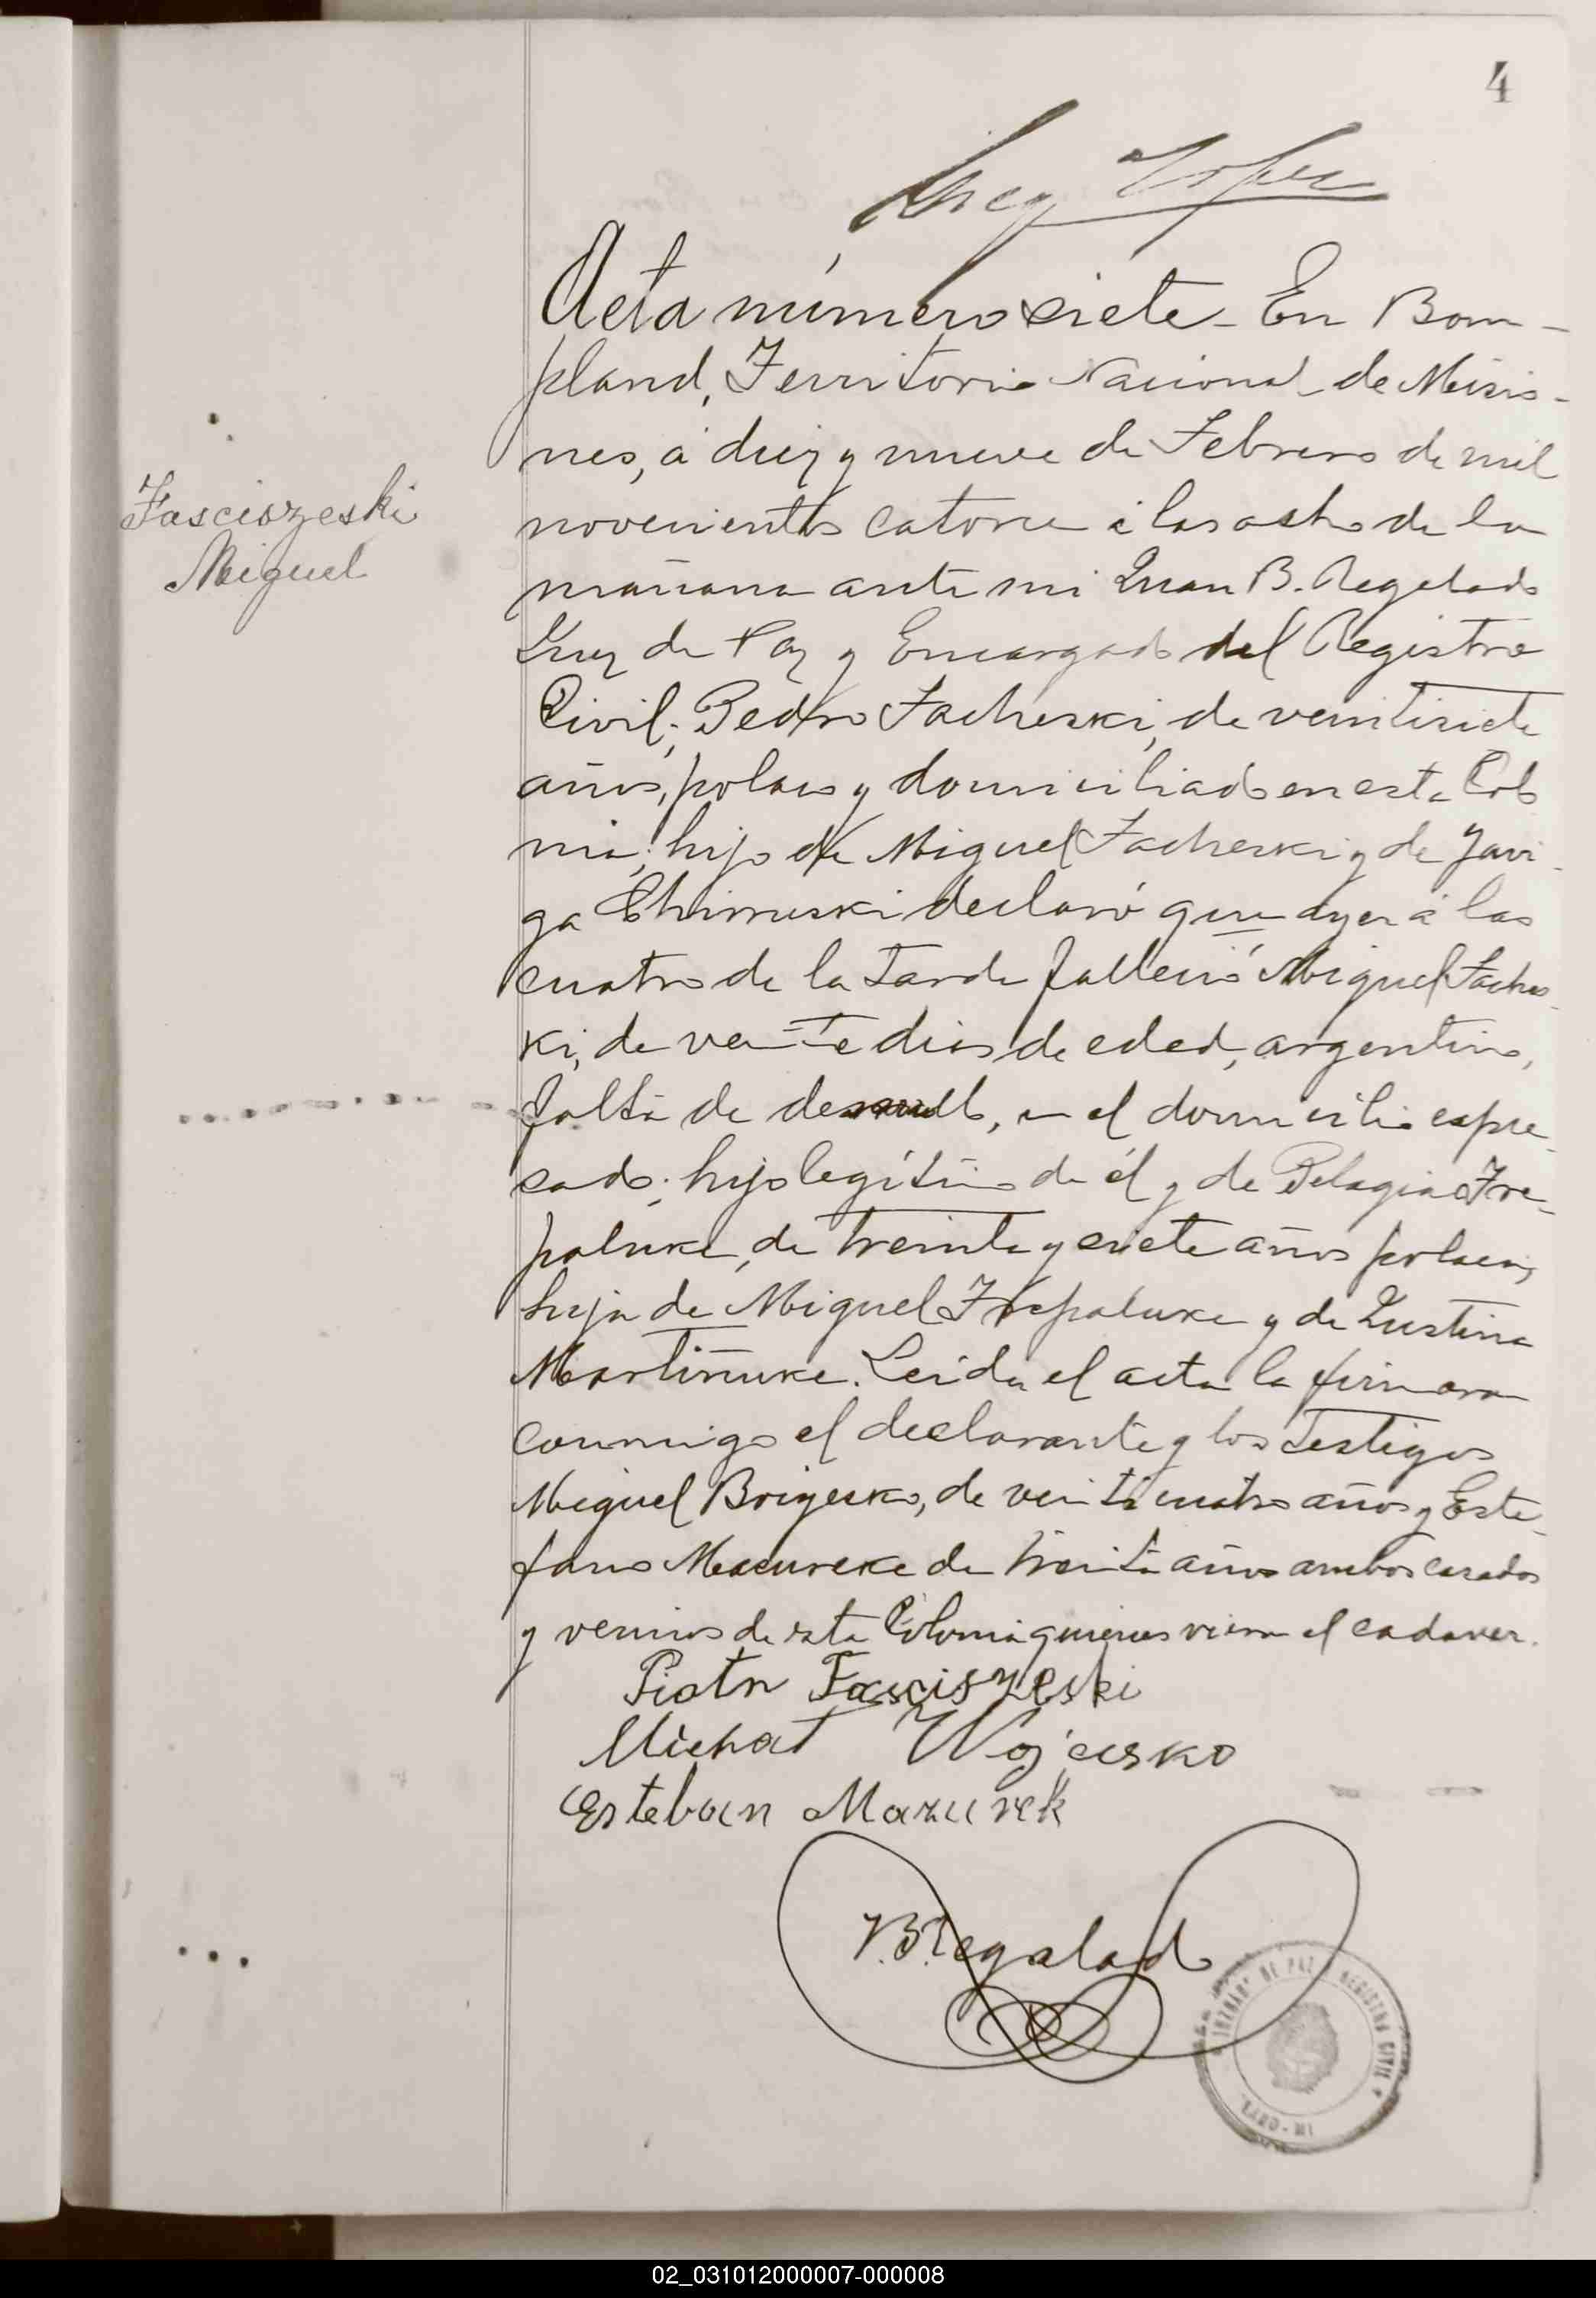 4
Acta número siete - En Bom-
pland, Territorio Nacional de Misio-
nes, á diez y nueve de Febrero de mil
novecientos catorce á las ocho de la
mañana ante mi Juan B. Regalado
Juez de Paz y Encargado del Registro
Civil; Pedro Facheski, de veintisiete
años, polaco y domiciliado en esta Colo
nia; hijo de Miguel Facheski y de Javi-
ga declaró que ayer á las
cuatro de la tarde falleció Miguel Faches-
ki, de veinte dias de edad, argentino,
falta de, en el domicilio expre-
sado; hijo legítimo de él y de Pelagia Tre-
paluke, de treinta y siete años polaca,
hija de Miguel Trepaluke y de Justina
Martiñuke. Leida el acta la firmaron
conmigo el declarante y los testigos
Miguel, de veinticuatro años y Este-
fano Masureke de treinta años ambos casados
y vecinos de esta Colonia quienes vieron el cadaver.
Fasciszeski
Miguel
Piotr Fasciszeski
Michał Wojcisko
Esteban Mazurek
J.B. Regalado
JUZGADO DE PAZ Y REGISTRO CIVIL
02_031012000007-000008